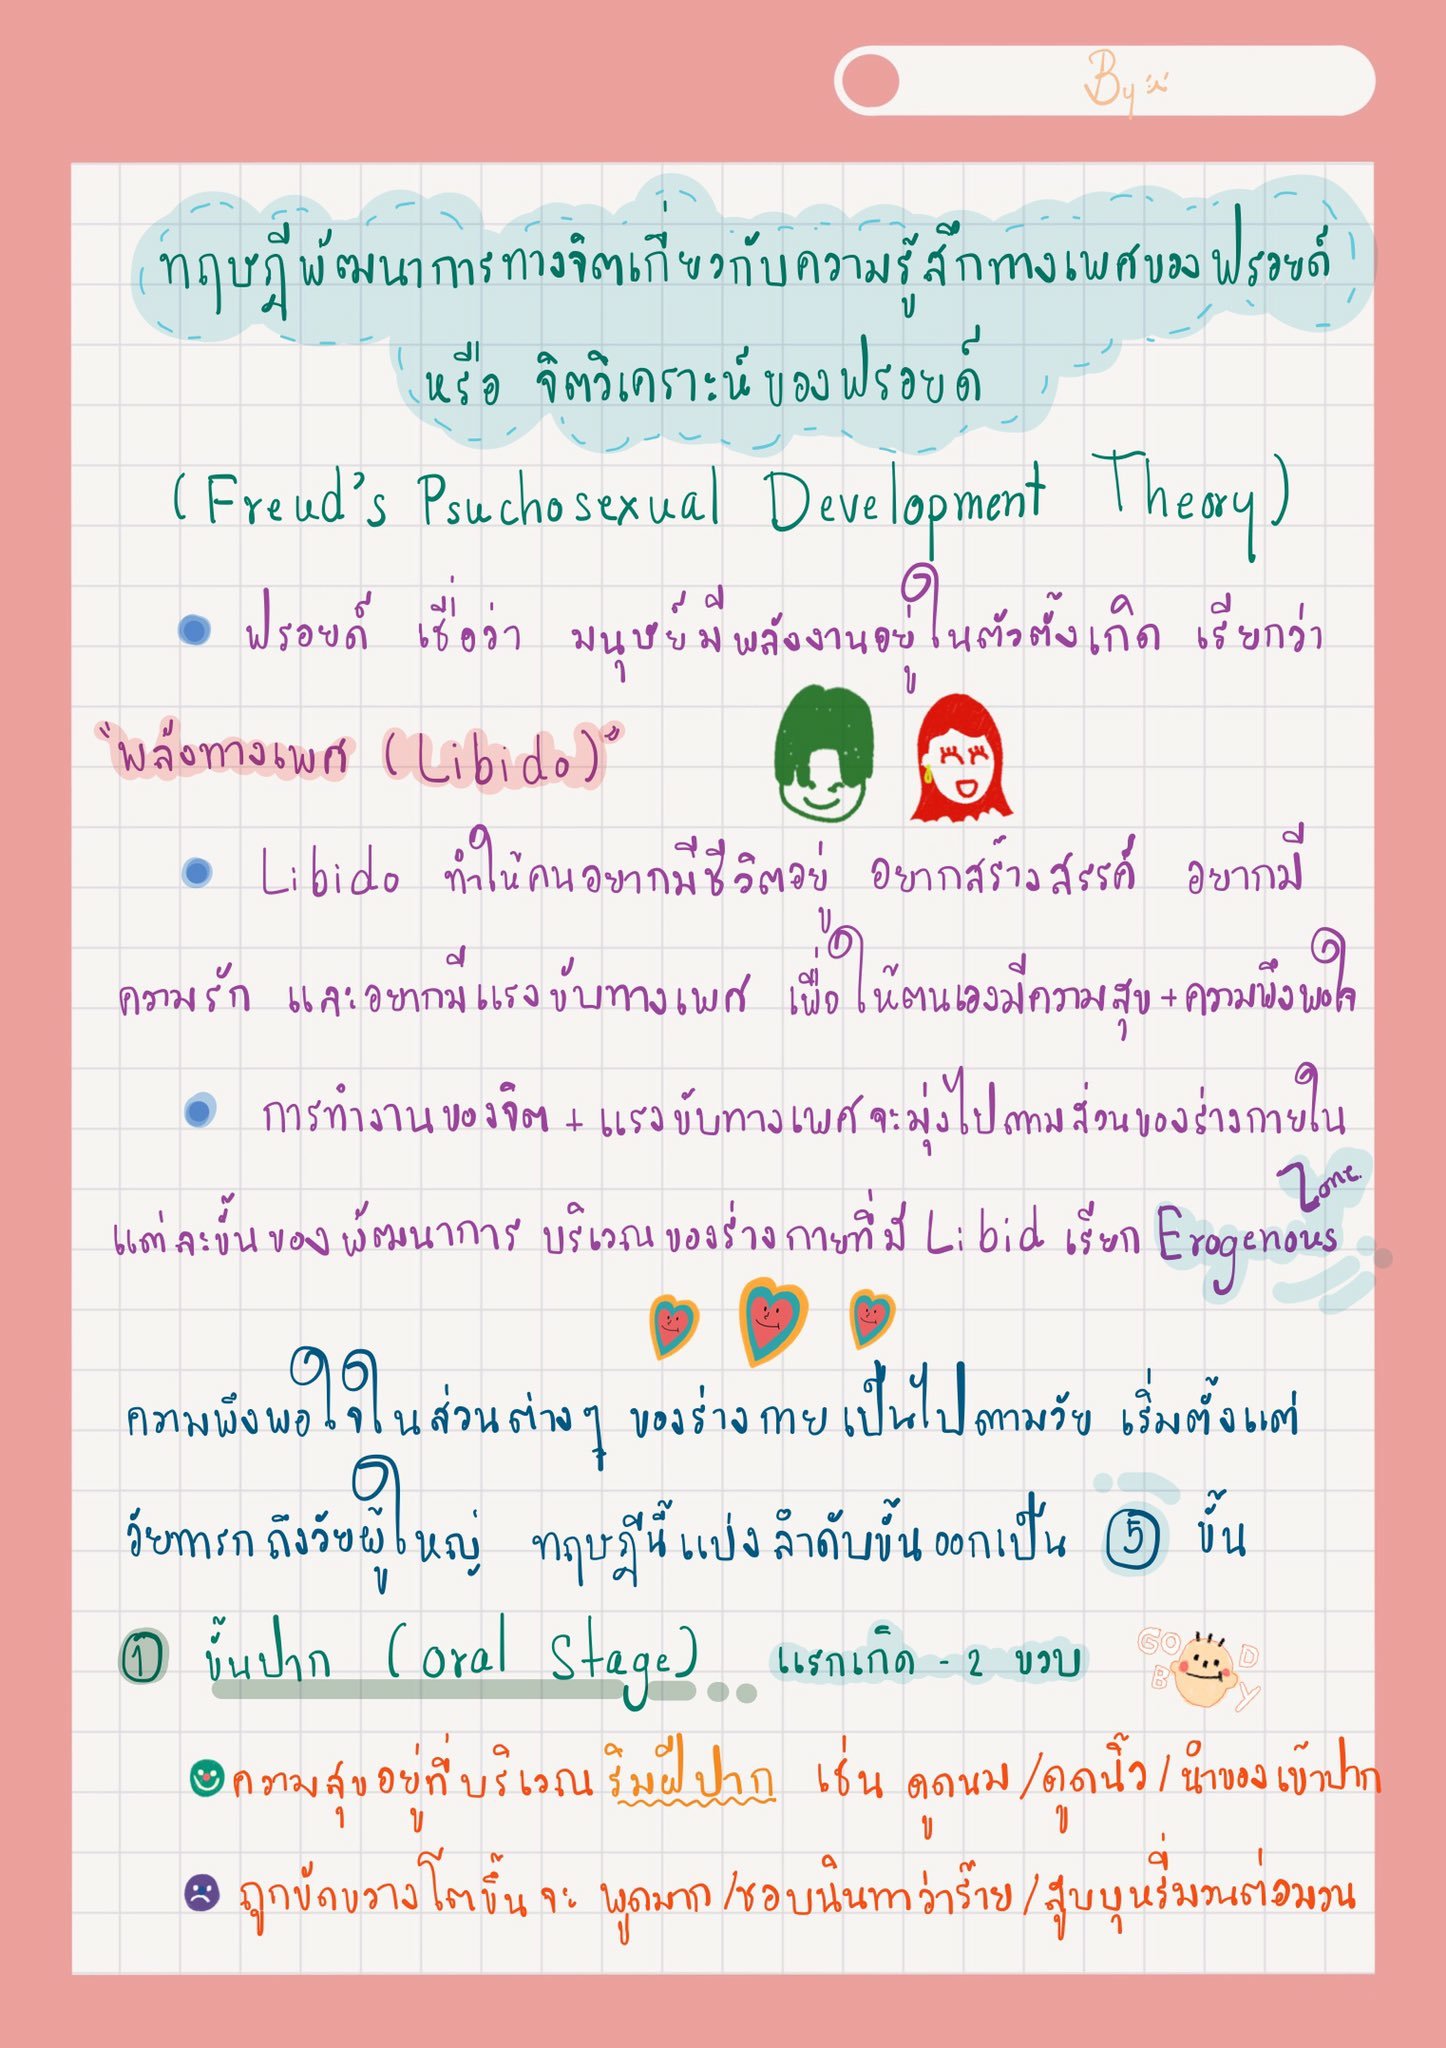 By
ทฤษฎีพัฒนาการทางจิตเกี่ยวกับความรู้สึกทางเพศของฟรอยด์
หรือ จิตวิเคราะห์ของฟรอยด์
(Freud's Psuchosexual Development Theory)
ฟรอยด์ เชื่อว่า มนุษย์มีพลังงานอยู่ในตัวตั้งเกิด เรียกว่า
"พลังทางเพศ (Libido)"
Libido ทำให้คนอยากมีชีวิตอยู่ อยากสร้างสรรค์ อยากมี
ความรัก และอยากมีแรงขับทางเพศ เพื่อให้ตนเองมีความสุข + ความพึงพอใจ
การทำงานของจิต + แรงขับทางเพศจะมุ่งไปตามส่วนของร่างกายใน
แต่ละขั้นของพัฒนาการ บริเวณของร่างกายที่มี Libid เรียก Erogenous Zone.
ความพึงพอใจในส่วนต่างๆ ของร่างกายเป็นไปตามวัย เริ่มตั้งแต่
วัยทารกถึงวัยผู้ใหญ่ ทฤษฎีนี้แบ่งลำดับขั้นออกเป็น 5 ขั้น
1 ขั้นปาก (Oral Stage) แรกเกิด - 2 ขวบ
GOOD BOY
ความสุขอยู่ที่บริเวณริมฝีปาก เช่น ดูดนม/ดูดนิ้ว/นำของเข้าปาก
ถูกขัดขวางโตขึ้นจะ พูดมาก/ชอบนินทาว่าร้าย/สูบบุหรี่มวนต่อมวน